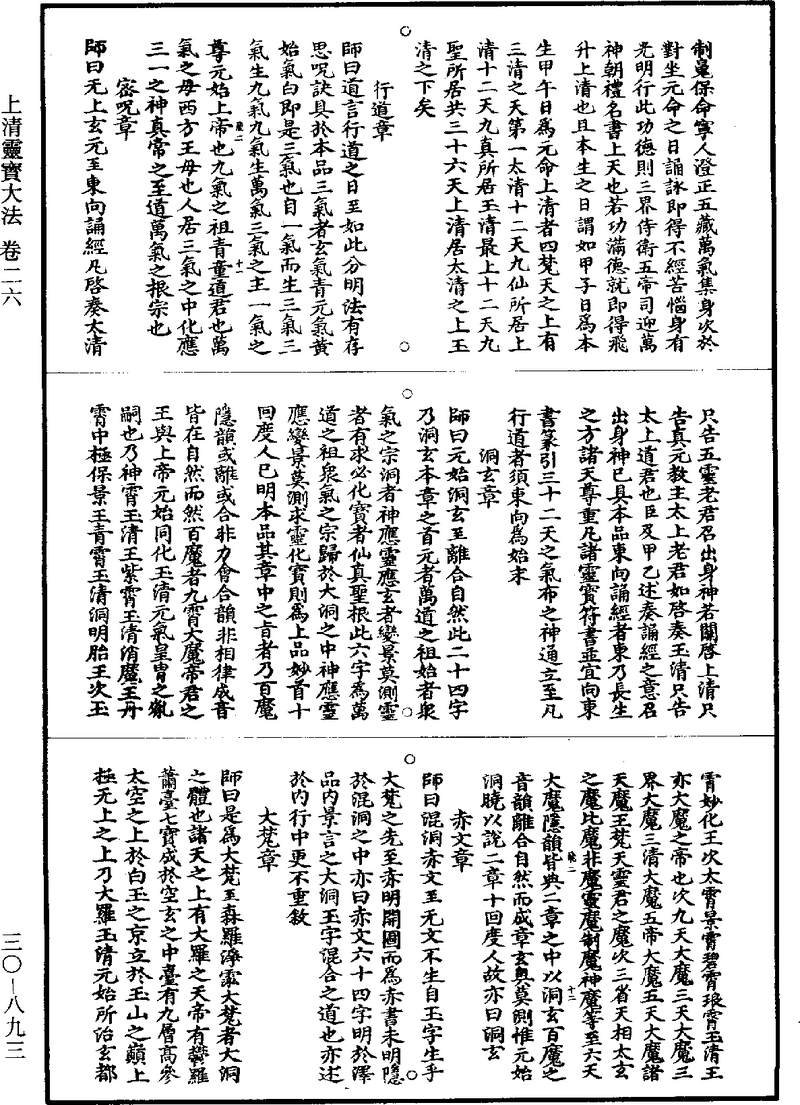 上清靈寶大法 卷二六
三〇—八九三
制魂保命寧人澄正五藏萬氣集身次於
對坐元命之日誦詠即得不經苦惱身有
光明行此功德則三界侍衛五帝司迎萬
神朝禮名書上天也若功滿德就即得飛
升上清也且本生之日謂如甲子日爲本
生甲午日爲元命上清者四梵天之上有
三清之天第一太清十二天九仙所居上
清十二天九真所居玉清最上十二天九
聖所居共三十六天上清居太清之上玉
清之下矣
行道章
師曰道言行道之日至如此分明法有存
思呪訣具於本品三氣者玄氣青元氣黃
始氣白即是三氣也自一氣而生三氣三
氣生九氣九氣生萬氣三氣之主一氣之
尊元始上帝也九氣之祖青童道君也萬
氣之母西方王母也人居三氣之中化應
三一之神真常之至道萬氣之根宗也
密呪章
師曰无上玄元至東向誦經凡啓奏太清
只告五靈老君召出身神若關啓上清只
告真元教主太上老君如啓奏玉清只告
太上道君也臣及甲乙述奏誦經之意召
出身神已具本品東向誦經者東乃長生
之方諸天尊重凡諸靈寶符書並宜向東
書篆引三十二天之氣布之神通立至凡
行道者須東向爲始末
洞玄章
師曰元始洞玄至離合自然此二十四字
乃洞玄本章之首元者萬道之祖始者衆
氣之宗洞者神應靈應玄者變景莫測靈
者有求必化寶者仙真聖根此六字爲萬
道之祖衆氣之宗歸於大洞之中神應靈
應變景莫測求靈化寶則爲上品妙首十
回度人已明本品其章中之旨者乃百魔
隱韻或離或合非力會合韻非相律成音
皆在自然而然百魔者九霄大魔帝君之
王與上帝元始同化玉清元氣皇胄之胤
嗣也乃神霄玉清王紫霄玉清消魔王丹
霄中極保景王青霄玉清洞明胎王次玉
霄妙化王次太霄景霄碧霄琅霄玉清王
亦大魔之帝也次九天大魔三天大魔三
界大魔三清大魔五帝大魔五天大魔諸
天魔王梵天靈君之魔次三省天相太玄
之魔比魔非魔靈魔制魔神魔等至六天
大魔隱韻皆與二章之中以洞玄百魔之
音韻離合自然而成章玄奧莫測惟元始
洞曉以說二章十回度人故亦曰洞玄
赤文章
師曰混洞赤文至无文不生自玉字生乎
大梵之先至赤明開圖而爲赤書未明隱
於混洞之中亦曰赤文六十四字明於澤
品內景言之大洞玉字混合之道也亦述
於內行中更不重敘
大梵章
師曰是爲大梵至森羅淨泓大梵者大洞
之體也諸天之上有大羅之天帝有鬱羅
蕭臺七寶成於空玄之中臺有九層高參
太空之上於白玉之京立於玉山之巔上
極无上之上乃大羅玉清元始所治玄都